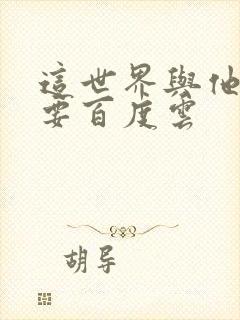 這世界與他
要百度雲
胡导